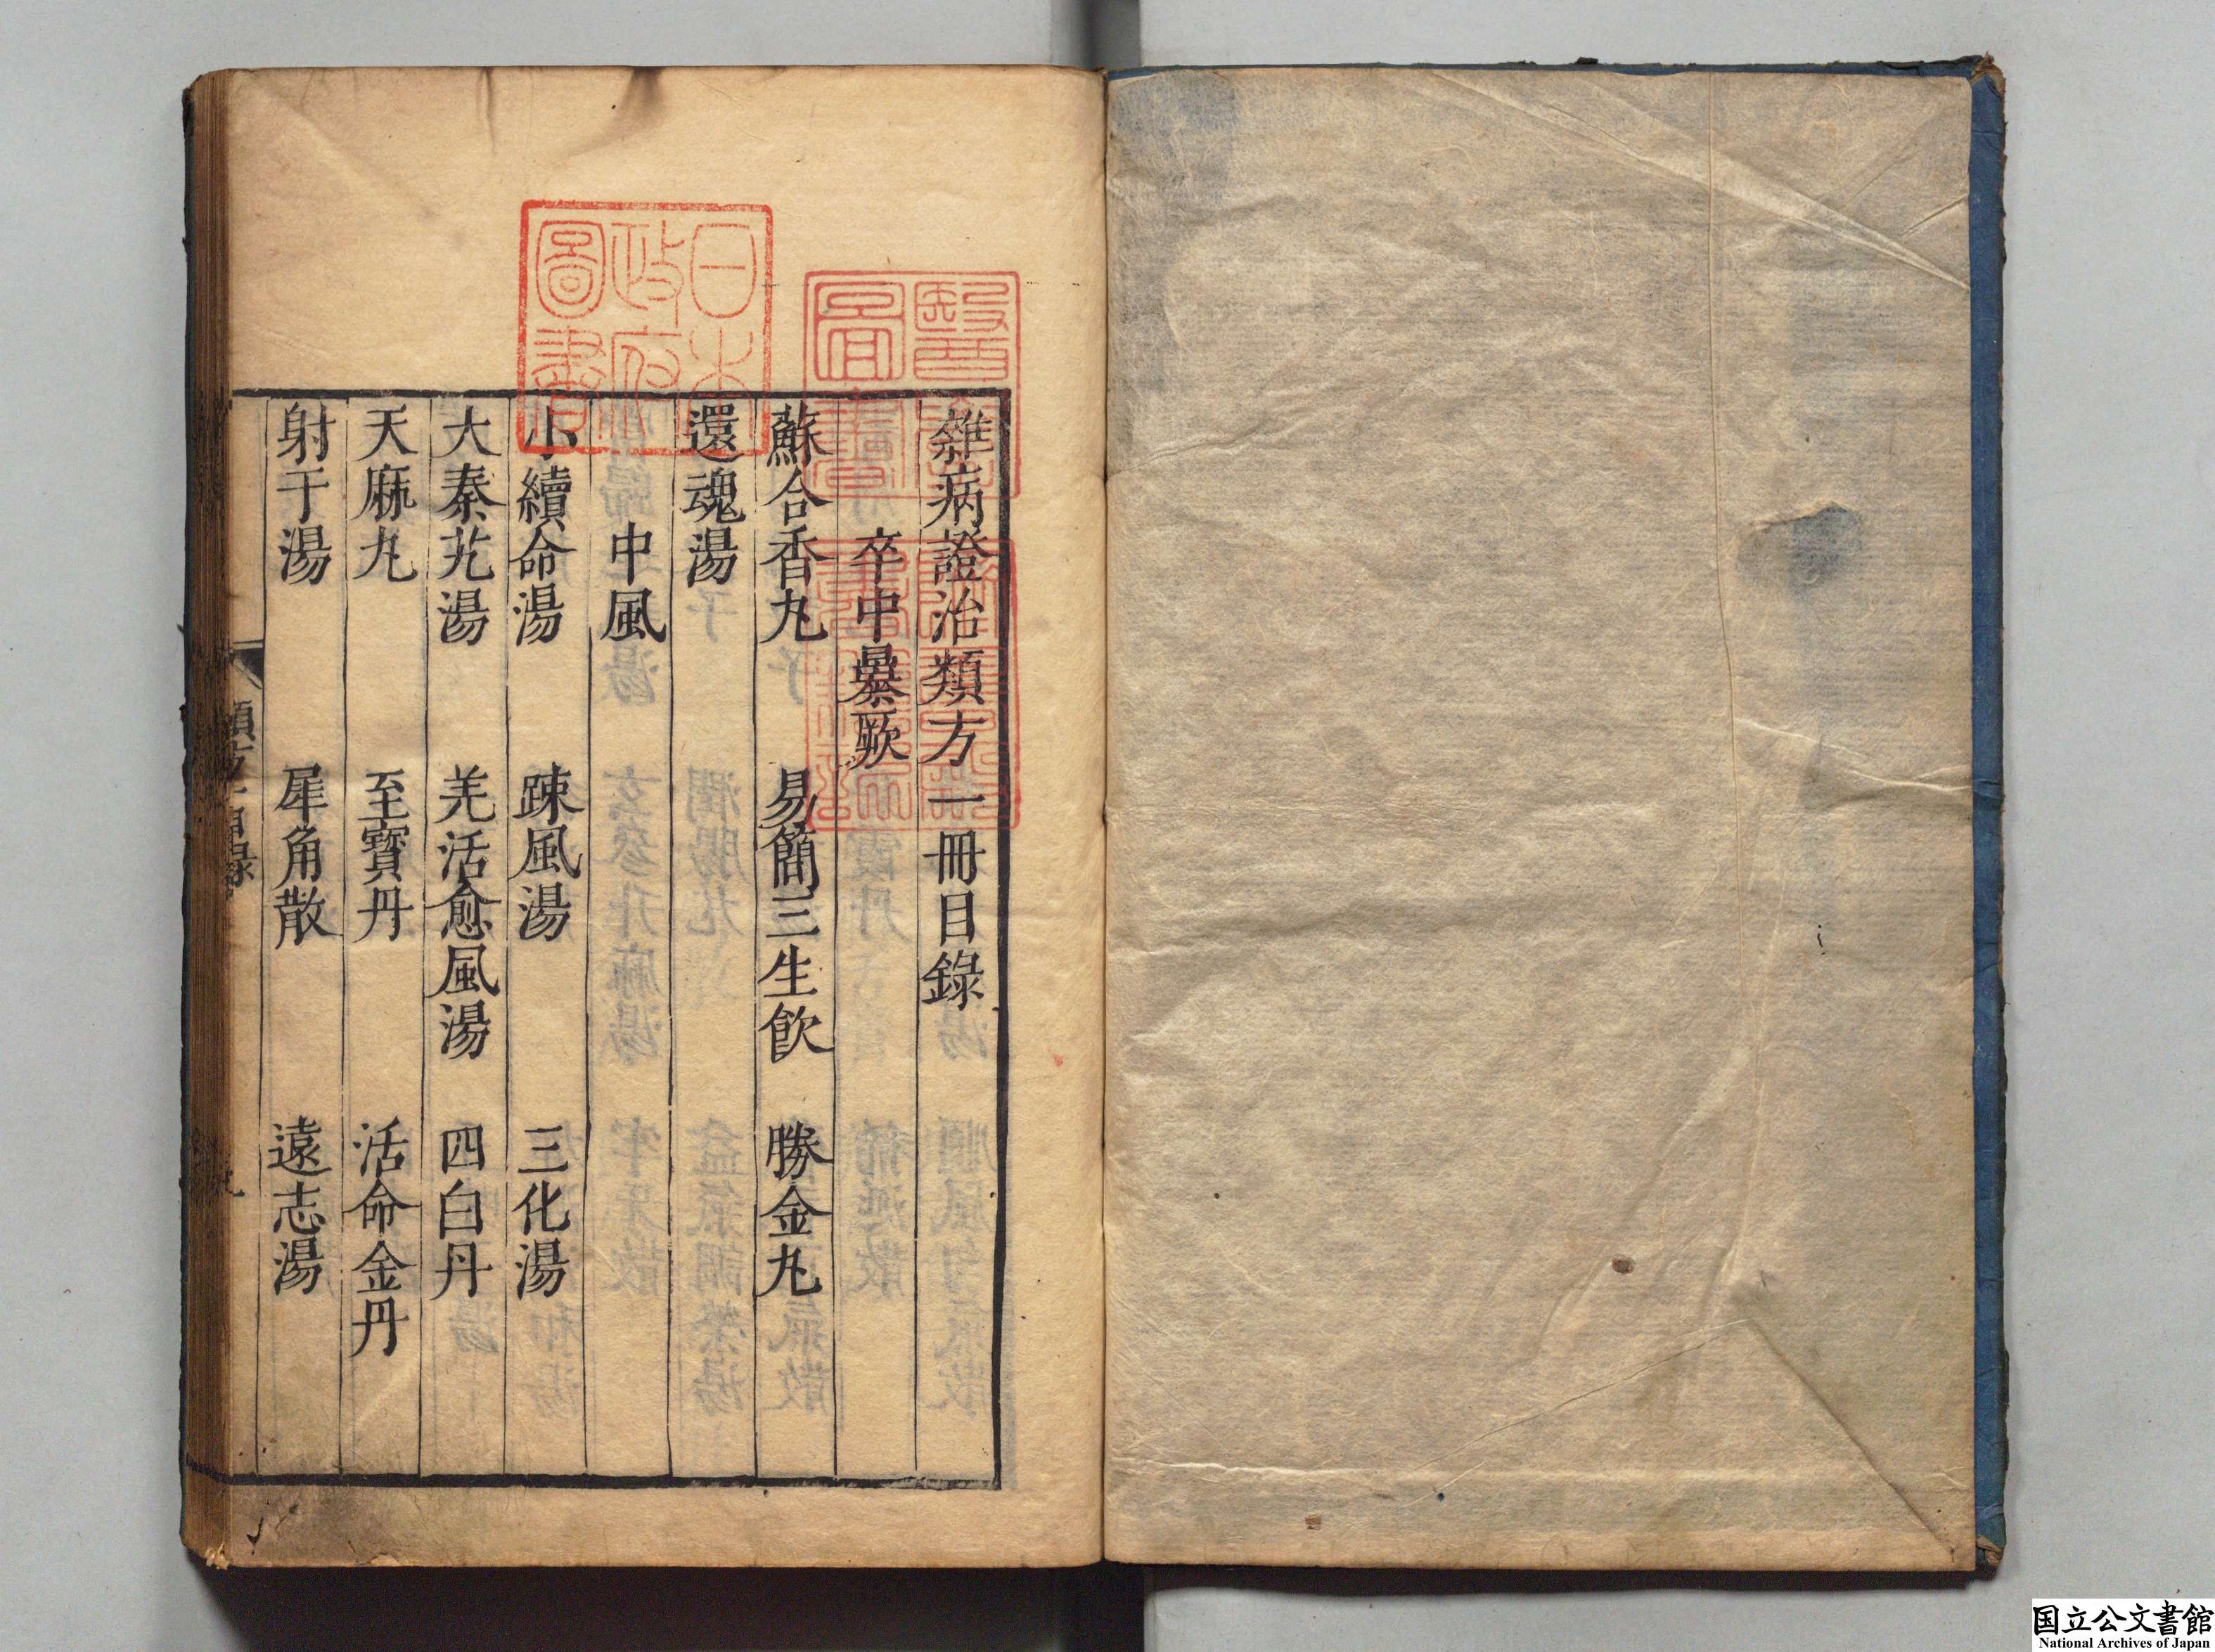 雜病證治類方一冊目錄
卒中暴厥
蘇合香丸 易簡三生飲 勝金丸
還魂湯
中風
小續命湯 踈風湯 三化湯
大秦艽湯 羌活愈風湯 四白丹
天麻丸 至寶丹 活命金丹
射干湯 犀角散 遠志湯
日本
政府
圖書
国立公文書館
National Archives of Japan